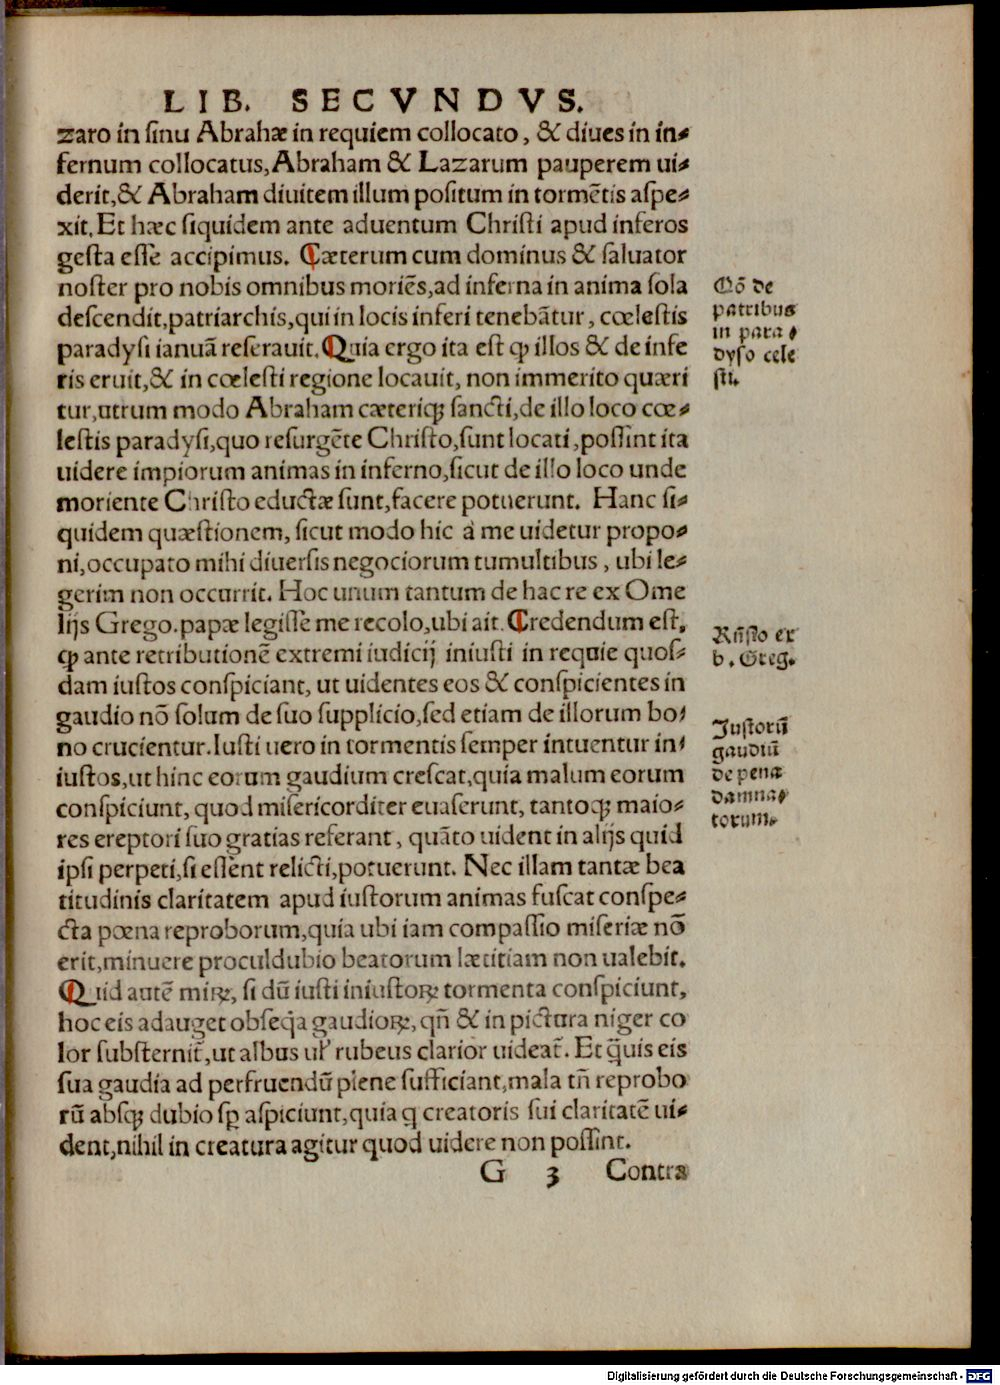 LIB. SECVNDVS.
zaro in sinu Abrahæ in requiem collocato, & diues in in⸗
fernum collocatus, Abraham & Lazarum pauperem ui⸗
derit, & Abraham diuitem illum positum in tormētis aspe⸗
xit. Et hæc siquidem ante aduentum Christi apud inferos
gesta esse accipimus. Cæterum cum dominus & saluator
noster pro nobis omnibus moriēs, ad inferna in anima sola
descendit, patriarchis, qui in locis inferi tenebātur, cœlestis
paradysi ianuā reserauit. Quia ergo ita est ꝙ illos & de infe
ris eruit, & in cœlesti regione locauit, non immerito quæri
tur, utrum modo Abraham cæteriqꝫ sancti, de illo loco cœ⸗
lestis paradysi, quo resurgēte Christo, sunt locati, possint ita
uidere impiorum animas in inferno, sicut de illo loco unde
moriente Christo eductæ sunt, facere potuerunt. Hanc si⸗
quidem quæstionem, sicut modo hic à me uidetur propo⸗
ni, occupato mihi diuersis negociorum tumultibus, ubi le⸗
gerim non occurrit. Hoc unum tantum de hac re ex Ome
lijs Grego. papæ legisse me recolo, ubi ait. Credendum est,
ꝙ ante retributionē extremi iudicij iniusti in requie quos⸗
dam iustos conspiciant, ut uidentes eos & conspicientes in
gaudio nō solum de suo supplicio, sed etiam de illorum bo⸗
no crucientur. Iusti uero in tormentis semper intuentur in⸗
iustos, ut hinc eorum gaudium crescat, quia malum eorum
conspiciunt, quod misericorditer euaserunt, tantoqꝫ maio⸗
res ereptori suo gratias referant, quāto uident in alijs quid
ipsi perpeti, si essent relicti, potuerunt. Nec illam tantæ bea
titudinis claritatem apud iustorum animas fuscat conspe⸗
cta pœna reproborum, quia ubi iam compassio miseriæ nō
erit, minuere proculdubio beatorum lætitiam non ualebit.
Quid autē miꝝ, si dū iusti iniustoꝝ tormenta conspiciunt,
hoc eis adauget obseq̇a gaudioꝝ, qn̄ & in pictura niger co
lor substernit̄, ut albus ul' rubeus clarior uideat̄. Et q̄uis eis
sua gaudia ad perfruendū plene sufficiant, mala tn̄ reprobo
rū absqꝫ dubio sꝑ aspiciunt, quia q creatoris sui claritatē ui⸗
dent, nihil in creatura agitur quod uidere non possint.
G 3 Contra
Qō de
patribus
in para⸗
dyso cele
sti.
Rn̄sio ex
b. Greg.
Iustorū
gaudiū
de pena
damna⸗
torum.
Digitalisierung gefördert durch die Deutsche Forschungsgemeinschaft - DFG